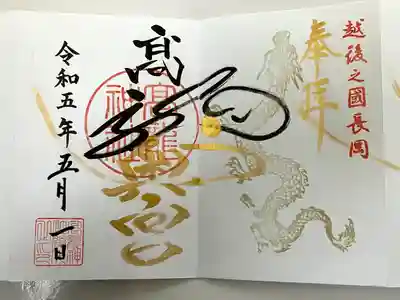 越後之國長岡
奉拝
髙龍
高龍神社
令和五年五月一日